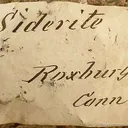 Siderite
Roxbury
Conn